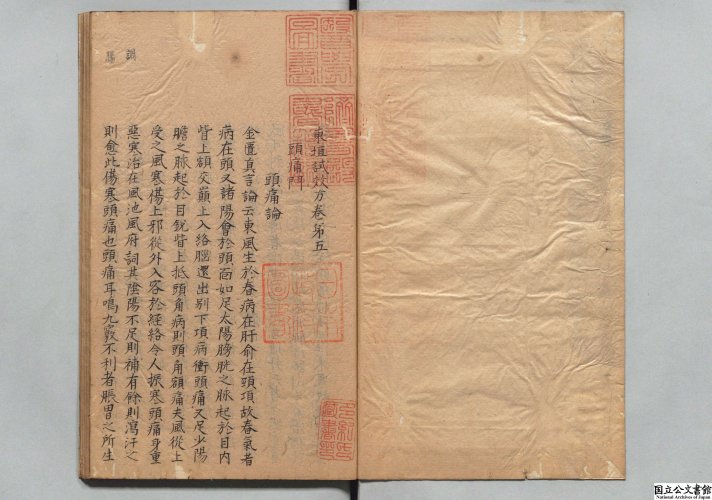 東垣試效方卷第五
頭痛門
頭痛論
金匱真言論云東風生於春病在肝俞在頭項故春氣者
病在頭又諸陽會於頭面如足太陽膀胱之脉起於目内
眥上額交巔上入絡腦還出别下項病衝頭痛又足少陽
膽之脉起於目銳眥上抵頭角病則頭角額痛夫風從上
受之風寒傷上邪從外入客於經絡令人振寒頭痛身重
惡寒治在風池風府調其陰陽不足則補有餘則瀉汗之
則愈此傷寒頭痛也頭痛耳鳴九竅不利者腸胃之所生
調
腸
国立公文書館
National Archives of Japan